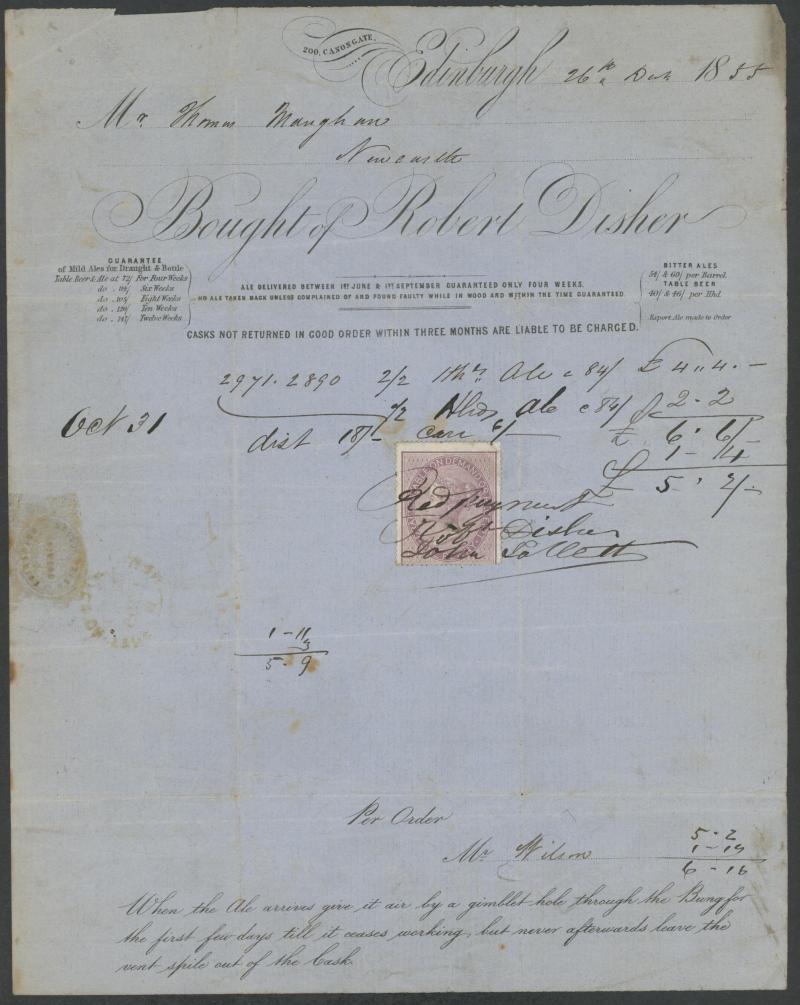 200, CANONGATE,
Edinburgh 26th Dec 1855
Mr. Thomas Maughan
Newcastle
Bought of Robert Disher
GUARANTEE
of Mild Ales for Draught & Bottle
Table Beer & Ale at 72/ For Four Weeks
do . 84/ Six Weeks
do . 105/ Eight Weeks
do . 126/ Ten Weeks
do . 147/ Twelve Weeks
ALE DELIVERED BETWEEN 1ST JUNE & 1ST SEPTEMBER GUARANTEED ONLY FOUR WEEKS.
NO ALE TAKEN BACK UNLESS COMPLAINED OF AND FOUND FAULTY WHILE IN WOOD AND WITHIN THE TIME GUARANTEED.
BITTER ALES
54/ & 60/ per Barrel.
TABLE BEER
40/ & 46/ per Hhd.
Export Ale made to Order
CASKS NOT RETURNED IN GOOD ORDER WITHIN THREE MONTHS ARE LIABLE TO BE CHARGED.
2971. 2890 2/2 Hhds Ale @ 84/ £ 4 " 4 . -
Oct 31 /2 Hhds ale @ 84/ 2 - 2
dist 18/- £ 6 . 6/-
1 - 4
£ 5 . 2/-
ON DEMAND
Recd payment
Robt Disher
John
1 - 11
3
5 . 9
Per Order
Mr Wilson
5 . 2
1 - 14
6 - 16
When the Ale arrives give it air by a gimblet hole through the Bung for
the first few days till it ceases working, but never afterwards leave the
vent spile out of the Cask.